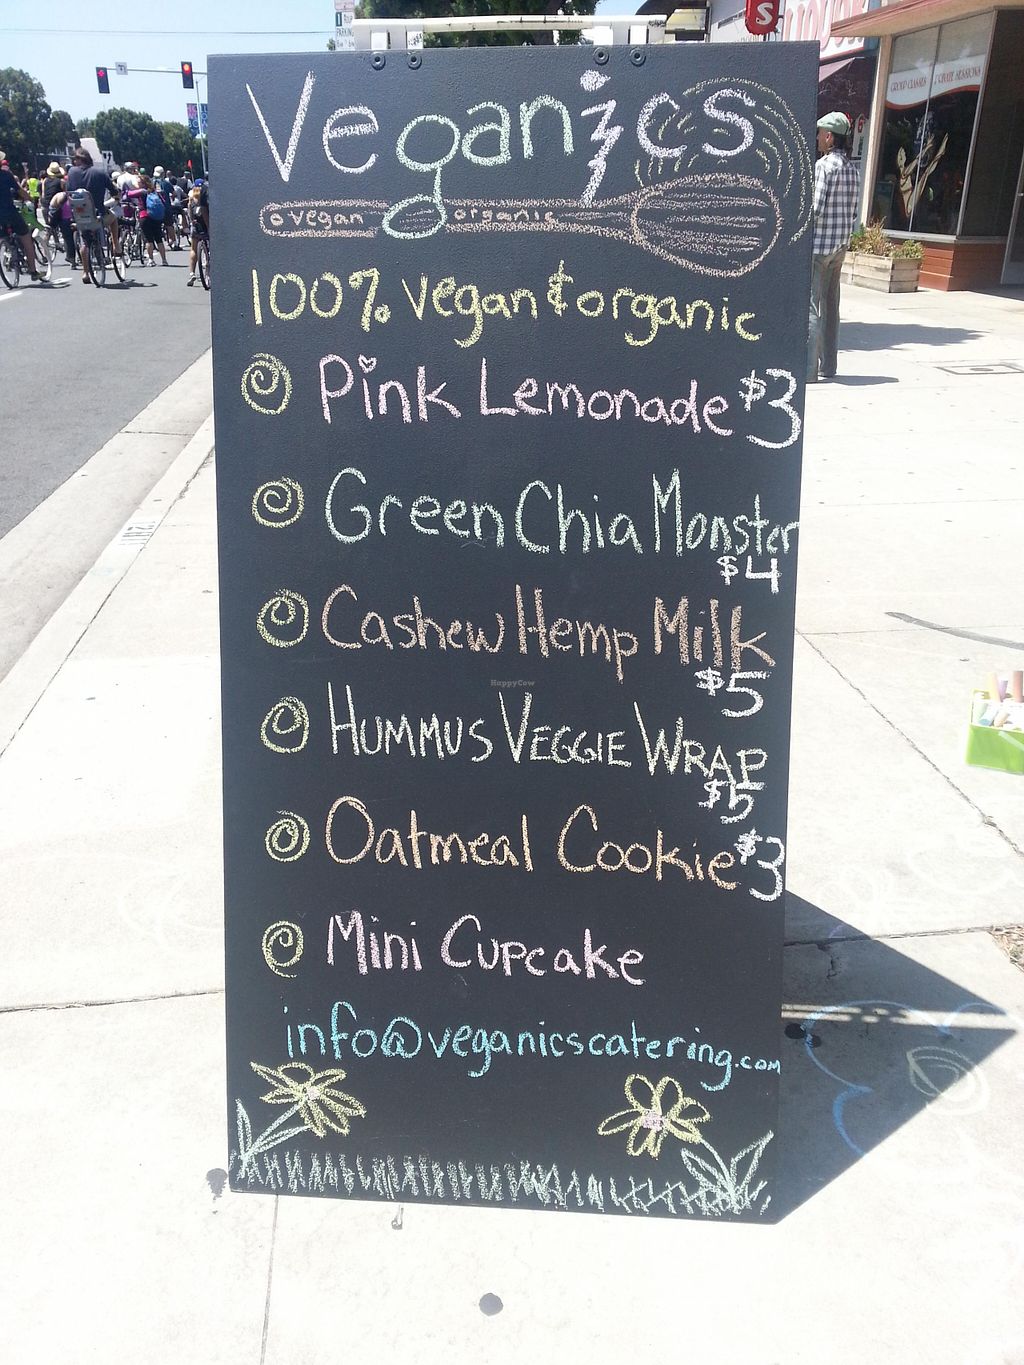 Veganics
vegan organic
100% vegan & organic
Pink Lemonade $3
Green Chia Monster
$4
Cashew Hemp Milk
$5
HappyCow
HUMMUS VEGGIE WRAP
$5
Oatmeal Cookie $3
Mini Cupcake
info@veganicscatering.com